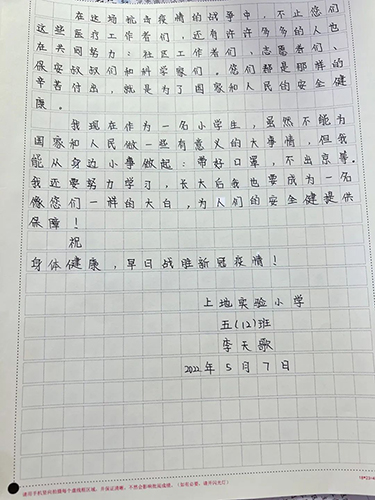 在这场抗击疫情的战争中，不止您们
这些医疗工作者们，还有许许多多的人也
在共同努力：社区工作者们、志愿者们、
保安叔叔们和科学家们。您们都是那样的
辛苦付出，就是为了国家和人民的安全健
康。
我现在作为一名小学生，虽然不能为
国家和人民做一些有意义的大事情，但我
能从身边小事做起：带好口罩，不出京等。
我还要努力学习，长大后我也要成为一名
像您们一样的大白，为人们的安全健提供
保障！
祝
身体健康，早日战胜新冠疫情！
上地实验小学
五(12)班
李天歌
2022年5月7日
请用手机竖向拍摄每个虚线框区域，并保证清晰，不然会影响批阅成绩。